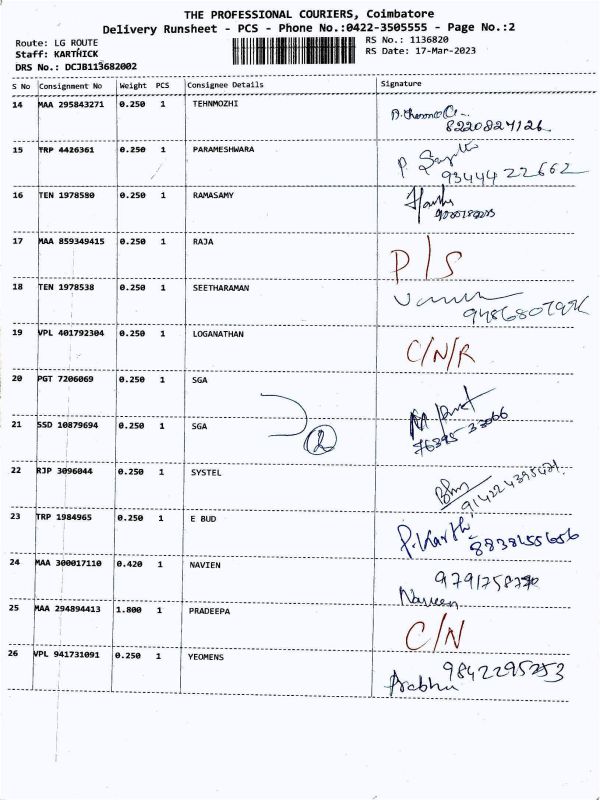 THE PROFESSIONAL COURIERS, Coimbatore
Delivery Runsheet - PCS - Phone No.:0422-3505555 - Page No.:2
Route: LG ROUTE
Staff: KARTHICK
DRS No.: DCJB113682002
RS No.: 1136820
RS Date: 17-Mar-2023
S No Consignment No Weight PCS Consignee Details Signature
14 MAA 295843271 0.250 1 TEHNMOZHI
8220827126
15 TRP 4426361 0.250 1 PARAMESHWARA P.
93444 22662
16 TEN 1978580 0.250 1 RAMASAMY
17 MAA 859349415 0.250 1 RAJA P/S
18 TEN 1978538 0.250 1 SEETHARAMAN
19 VPL 401792304 0.250 1 LOGANATHAN C/N/R
20 PGT 7206069 0.250 1 SGA
21 SSD 10879694 0.250 1 SGA 2
76395 33066
22 RJP 3096044 0.250 1 SYSTEL
23 TRP 1984965 0.250 1 E BUD P.Karthi
8838155656
24 MAA 300017110 0.420 1 NAVIEN
Naveen
25 MAA 294894413 1.800 1 PRADEEPA C/N
26 VPL 941731091 0.250 1 YEOMENS 9842295253
Prabhu